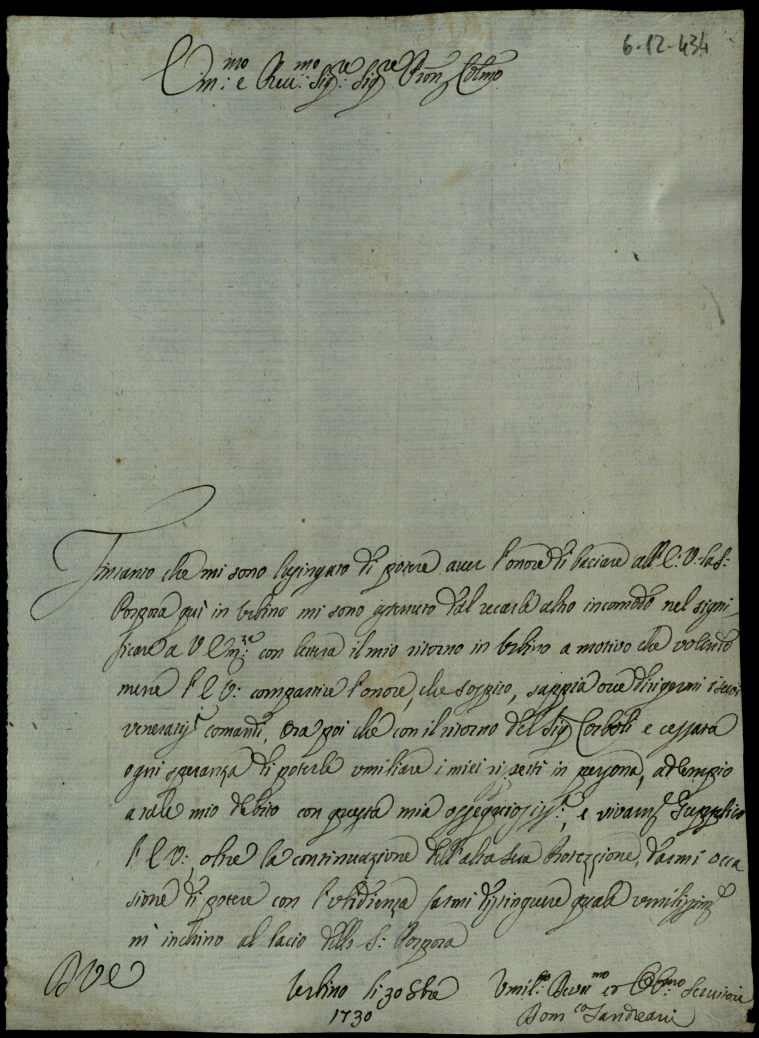 6-12-434
Em:mo e Rev:mo Sig:re Sig:re Pron Colmo
Intanto che mi sono lusingato di potere aver l'onore di baciare all'E: V: la S:
Porpora quì in Urbino mi sono astenuto dal recarle altro incomodo nel signi
ficare a V Em:za con lettera il mio ritorno in Urbino a motivo che volendo
mene l'E V: compartire l'onore, che sospiro, sappia ove dirigermi i suoi
venerati comandi, Ora poi che con il ritorno del Sig Corboli e cessata
ogni speranza di poterle umiliare i miei rispetti in persona, adempio
a tale mio debito con questa mia ossequiosiss:a, e vivam:e Supplico
l'E V:, oltre la continuazione dell'alta sua Protezzione, darmi occa
sione di potere con l'ubidienza farmi distinguere quale umilissim:e
m'inchino al bacio della S: Porpora
D V E
Urbino li 30 8bre
1730
Umil:mo Devot:mo et Obl:mo Servitore
Dom:co